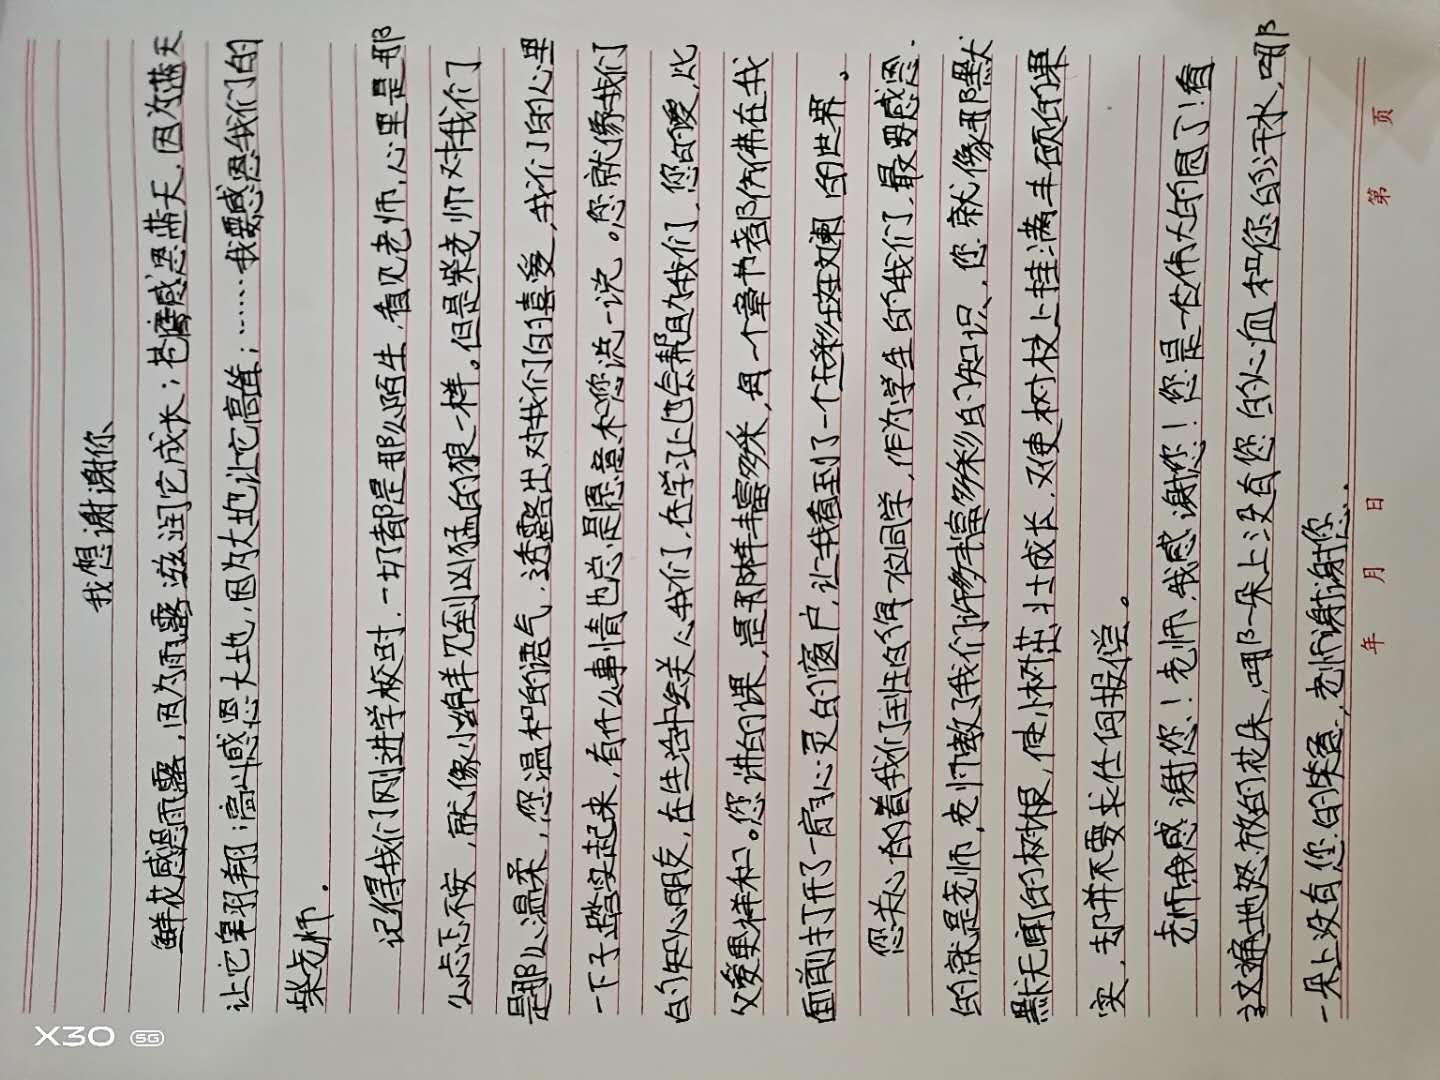 我想谢谢你
鲜花感恩雨露，因为雨露滋润它成长；苍鹰感恩蓝天，因为蓝天
让它翱翔；高山感恩大地，因为大地让它高耸；……我要感恩我们的
柴老师．
记得我们刚进学校时，一切都是那么陌生，看见老师，心里是那
么忐忑不安，就像小绵羊见到凶猛的狼一样。但是柴老师对我们
是那么温柔，您温和的语气，透露出对我们的喜爱，我们的心里
一下子踏实起来，有什么事情也总是愿意和您说一说。您就像我们
的知心朋友，在生活中关心我们，在学习上也会帮助我们，您的爱，比
父爱更祥和。您讲的课，是那样丰富多彩，每一个章节都仿佛在我
面前打开了一扇心灵的窗户，让我看到了一个五彩斑斓的世界。
您关心的着我们全任的每一位同学，作为学生的我们，最要感恩．
的就是老师，老师教了我们许多丰富多彩的知识，您就像那默
默无闻的树根，使小树茁壮成长，又使树枝上挂满丰硕的果
实，却并不要求任何报偿。
老师，我感谢您！老师，我感谢您！您是一位伟大的园丁！看
这遍地怒放的花朵，哪一朵上没有您的心血和您的汗水，哪
一朵上没有您的笑脸，老师谢谢您．
年 月 日 第 页
X30 5G